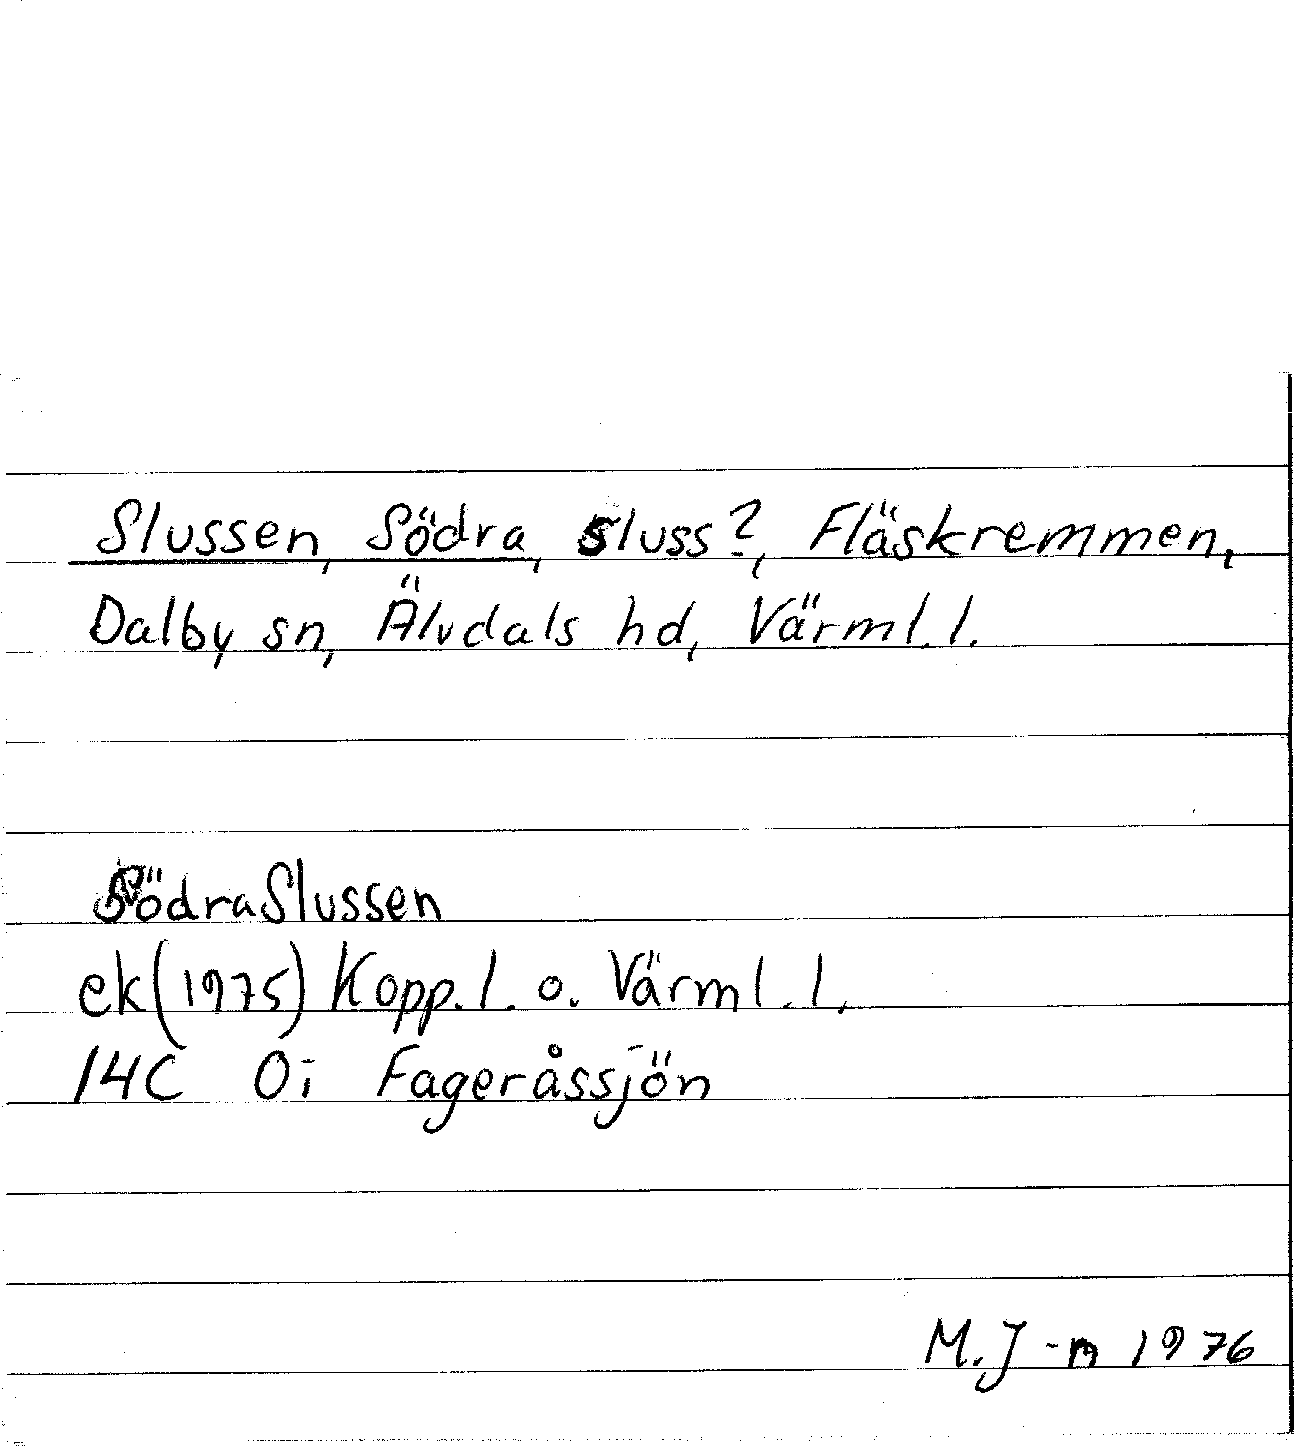 Slussen, Södra, sluss?, Fläskremmen,
Dalby sn, Älvdals hd, Värml. l.
Södra Slussen
ek (1975) Kopp. l. o. Värml. l.
14C 0i Fageråssjön
M. J-n 1976